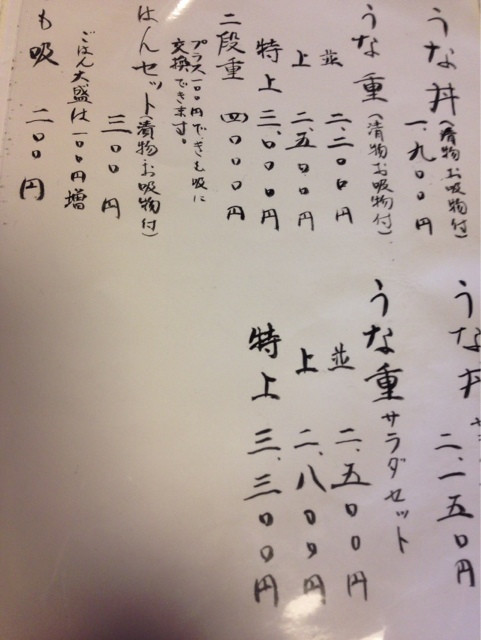 うな丼(漬物お吸物付)
一、九〇〇円
うな重(漬物お吸物付)
並 二、二〇〇円
上 二、五〇〇円
特上 三、〇〇〇円
二段重 四〇〇〇円
プラス一〇〇円できも吸に
交換できます。
はんセット(漬物お吸物付)
三〇〇円
ごはん大盛は一〇〇円増
も吸 二〇〇円
うな丼
二、一五〇円
うな重サラダセット
並 二、五〇〇円
上 二、八〇〇円
特上 三、三〇〇円